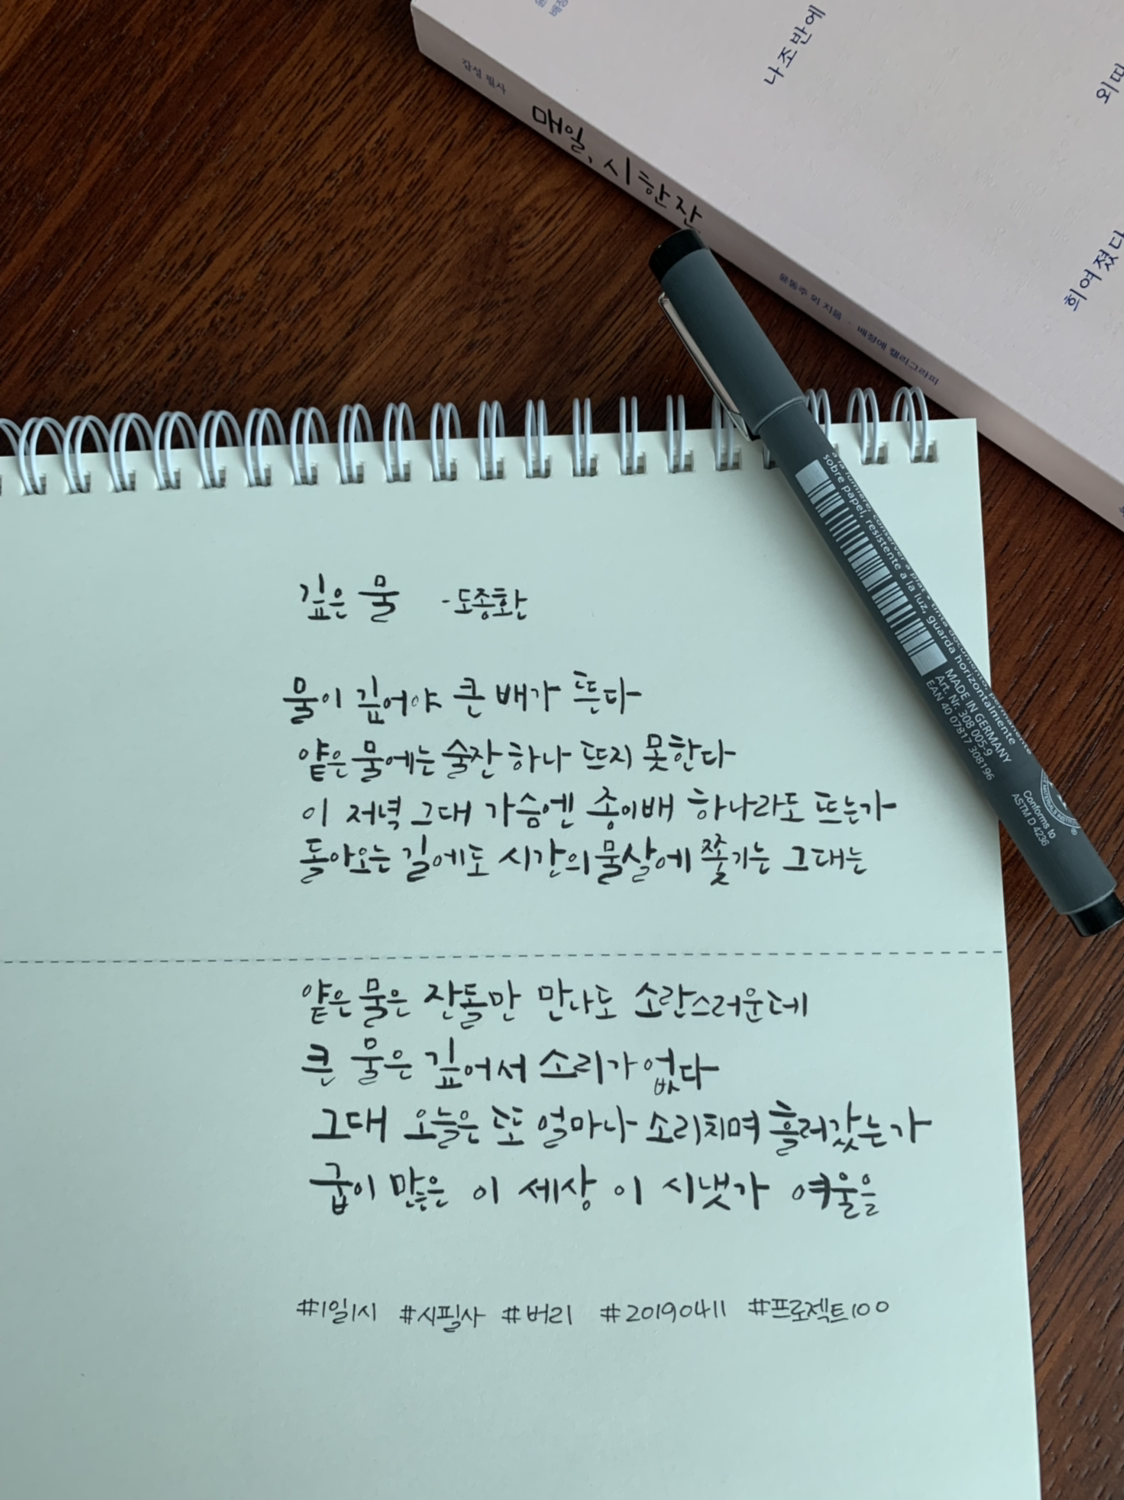 나조반에
외따
희여졌다
감성 필사
매일, 시 한 잔
윤동주 외 지음 · 배정애 캘리그라피
sobre papel, resistente a la luz, guarda horizontalmente
MADE IN GERMANY
Art. Nr. 308 005-9
EAN 40 07817 308196
Conforms to
ASTM D 4236
깊은 물 -도종환
물이 깊어야 큰 배가 뜬다
얕은 물에는 술잔 하나 뜨지 못한다
이 저녁 그대 가슴엔 종이배 하나라도 뜨는가
돌아오는 길에도 시간의 물살에 쫓기는 그대는
얕은 물은 잔돌만 만나도 소란스러운데
큰 물은 깊어서 소리가 없다
그대 오늘은 또 얼마나 소리치며 흘러갔는가
굽이 많은 이 세상 이 시냇가 여울을
#1일1시 #시필사 #버리 #20190411 #프로젝트100